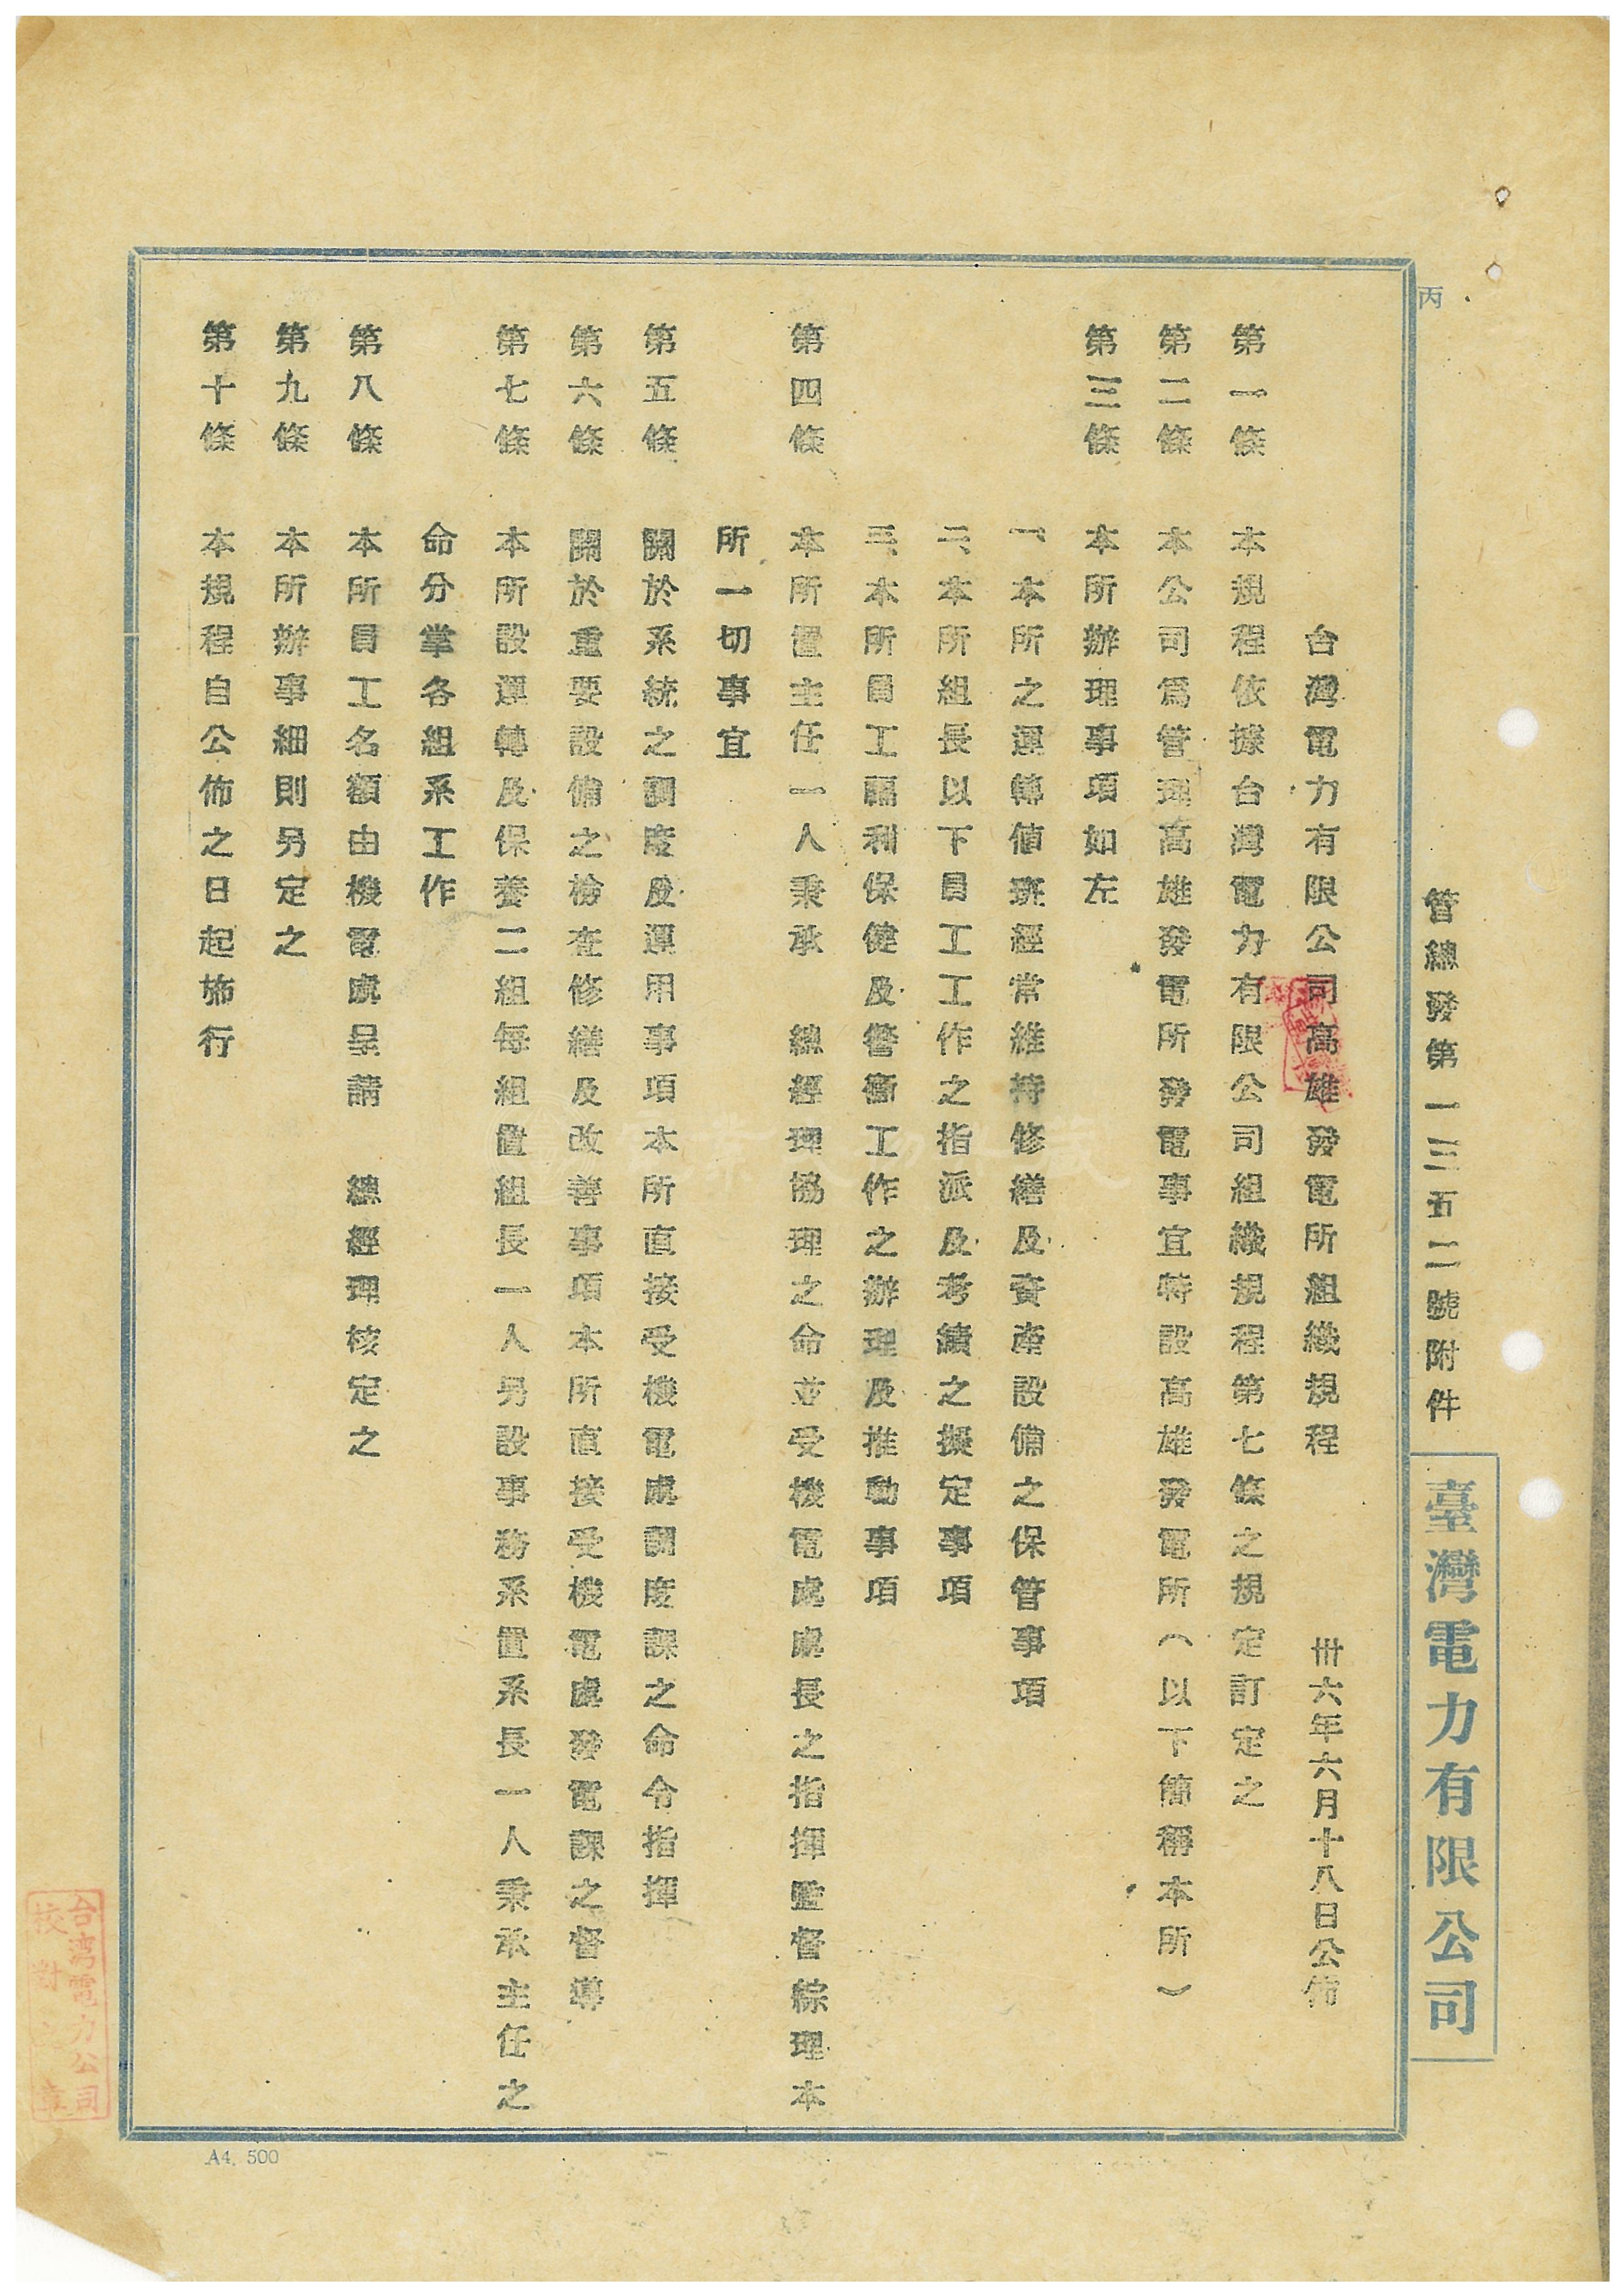 丙
管總發第一三五二號附件
臺灣電力有限公司
台灣電力有限公司高雄發電所組織規程
卅六年六月十八日公佈
第一條 本規程依據台灣電力有限公司組織規程第七條之規定訂定之
第二條 本公司為管理高雄發電所發電事宜特設高雄發電所（以下簡稱本所）
第三條 本所辦理事項如左
一、本所之運轉值班經常維持修繕及資產設備之保管事項
二、本所組長以下員工工作之指派及考績之擬定事項
三、本所員工福利保健及警衛工作之辦理及推動事項
第四條 本所置主任一人秉承 總經理協理之命並受機電處處長之指揮監督綜理本
所一切事宜
第五條 關於系統之調度及運用事項本所直接受機電處調度課之命令指揮
第六條 關於重要設備之檢查修繕及改善事項本所直接受機電處發電課之督導
第七條 本所設運轉及保養二組每組置組長一人另設事務系置系長一人秉承主任之
命分掌各組系工作
第八條 本所員工名額由機電處呈請 總經理核定之
第九條 本所辦事細則另定之
第十條 本規程自公佈之日起施行
台湾電力公司
校對之章
A4. 500